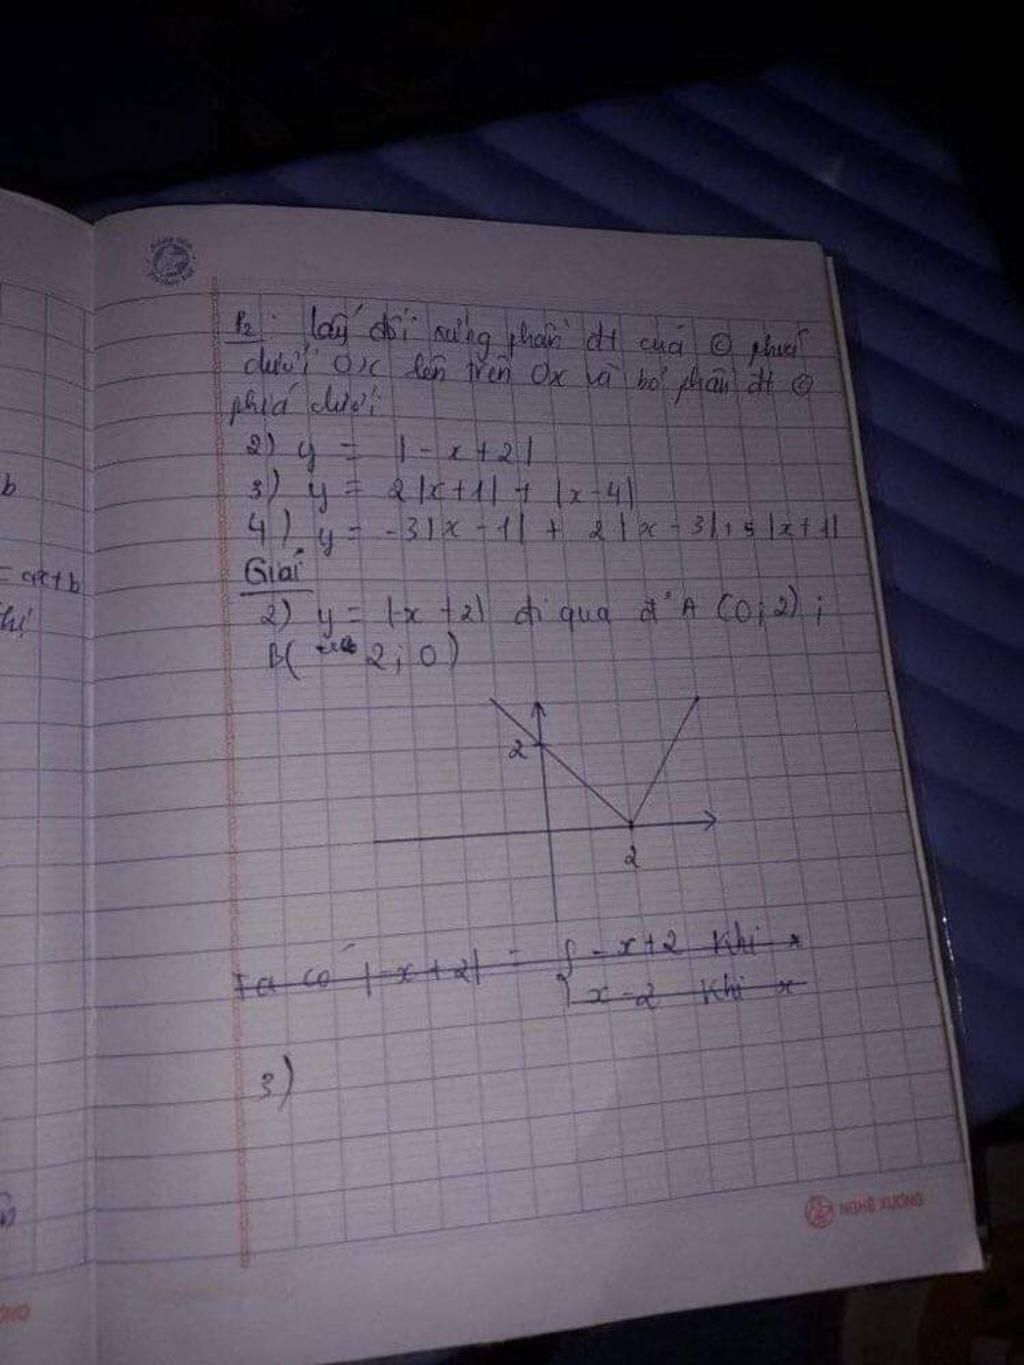 P2: lấy đối xứng phần đt của © phía
dưới Ox lên trên Ox và bỏ phần đt ©
phía dưới
2) y = |-x+2|
3) y = 2|x+1| + |x-4|
4) y = -3|x-1| + 2|x-3|+5|x+1|
Giải
2) y = |-x+2| đi qua đ' A (0;2);
B( 2;0)
2
2
Ta có |-x+2| = { -x+2 khi x
x-2 khi x
3)
b
= ax+b